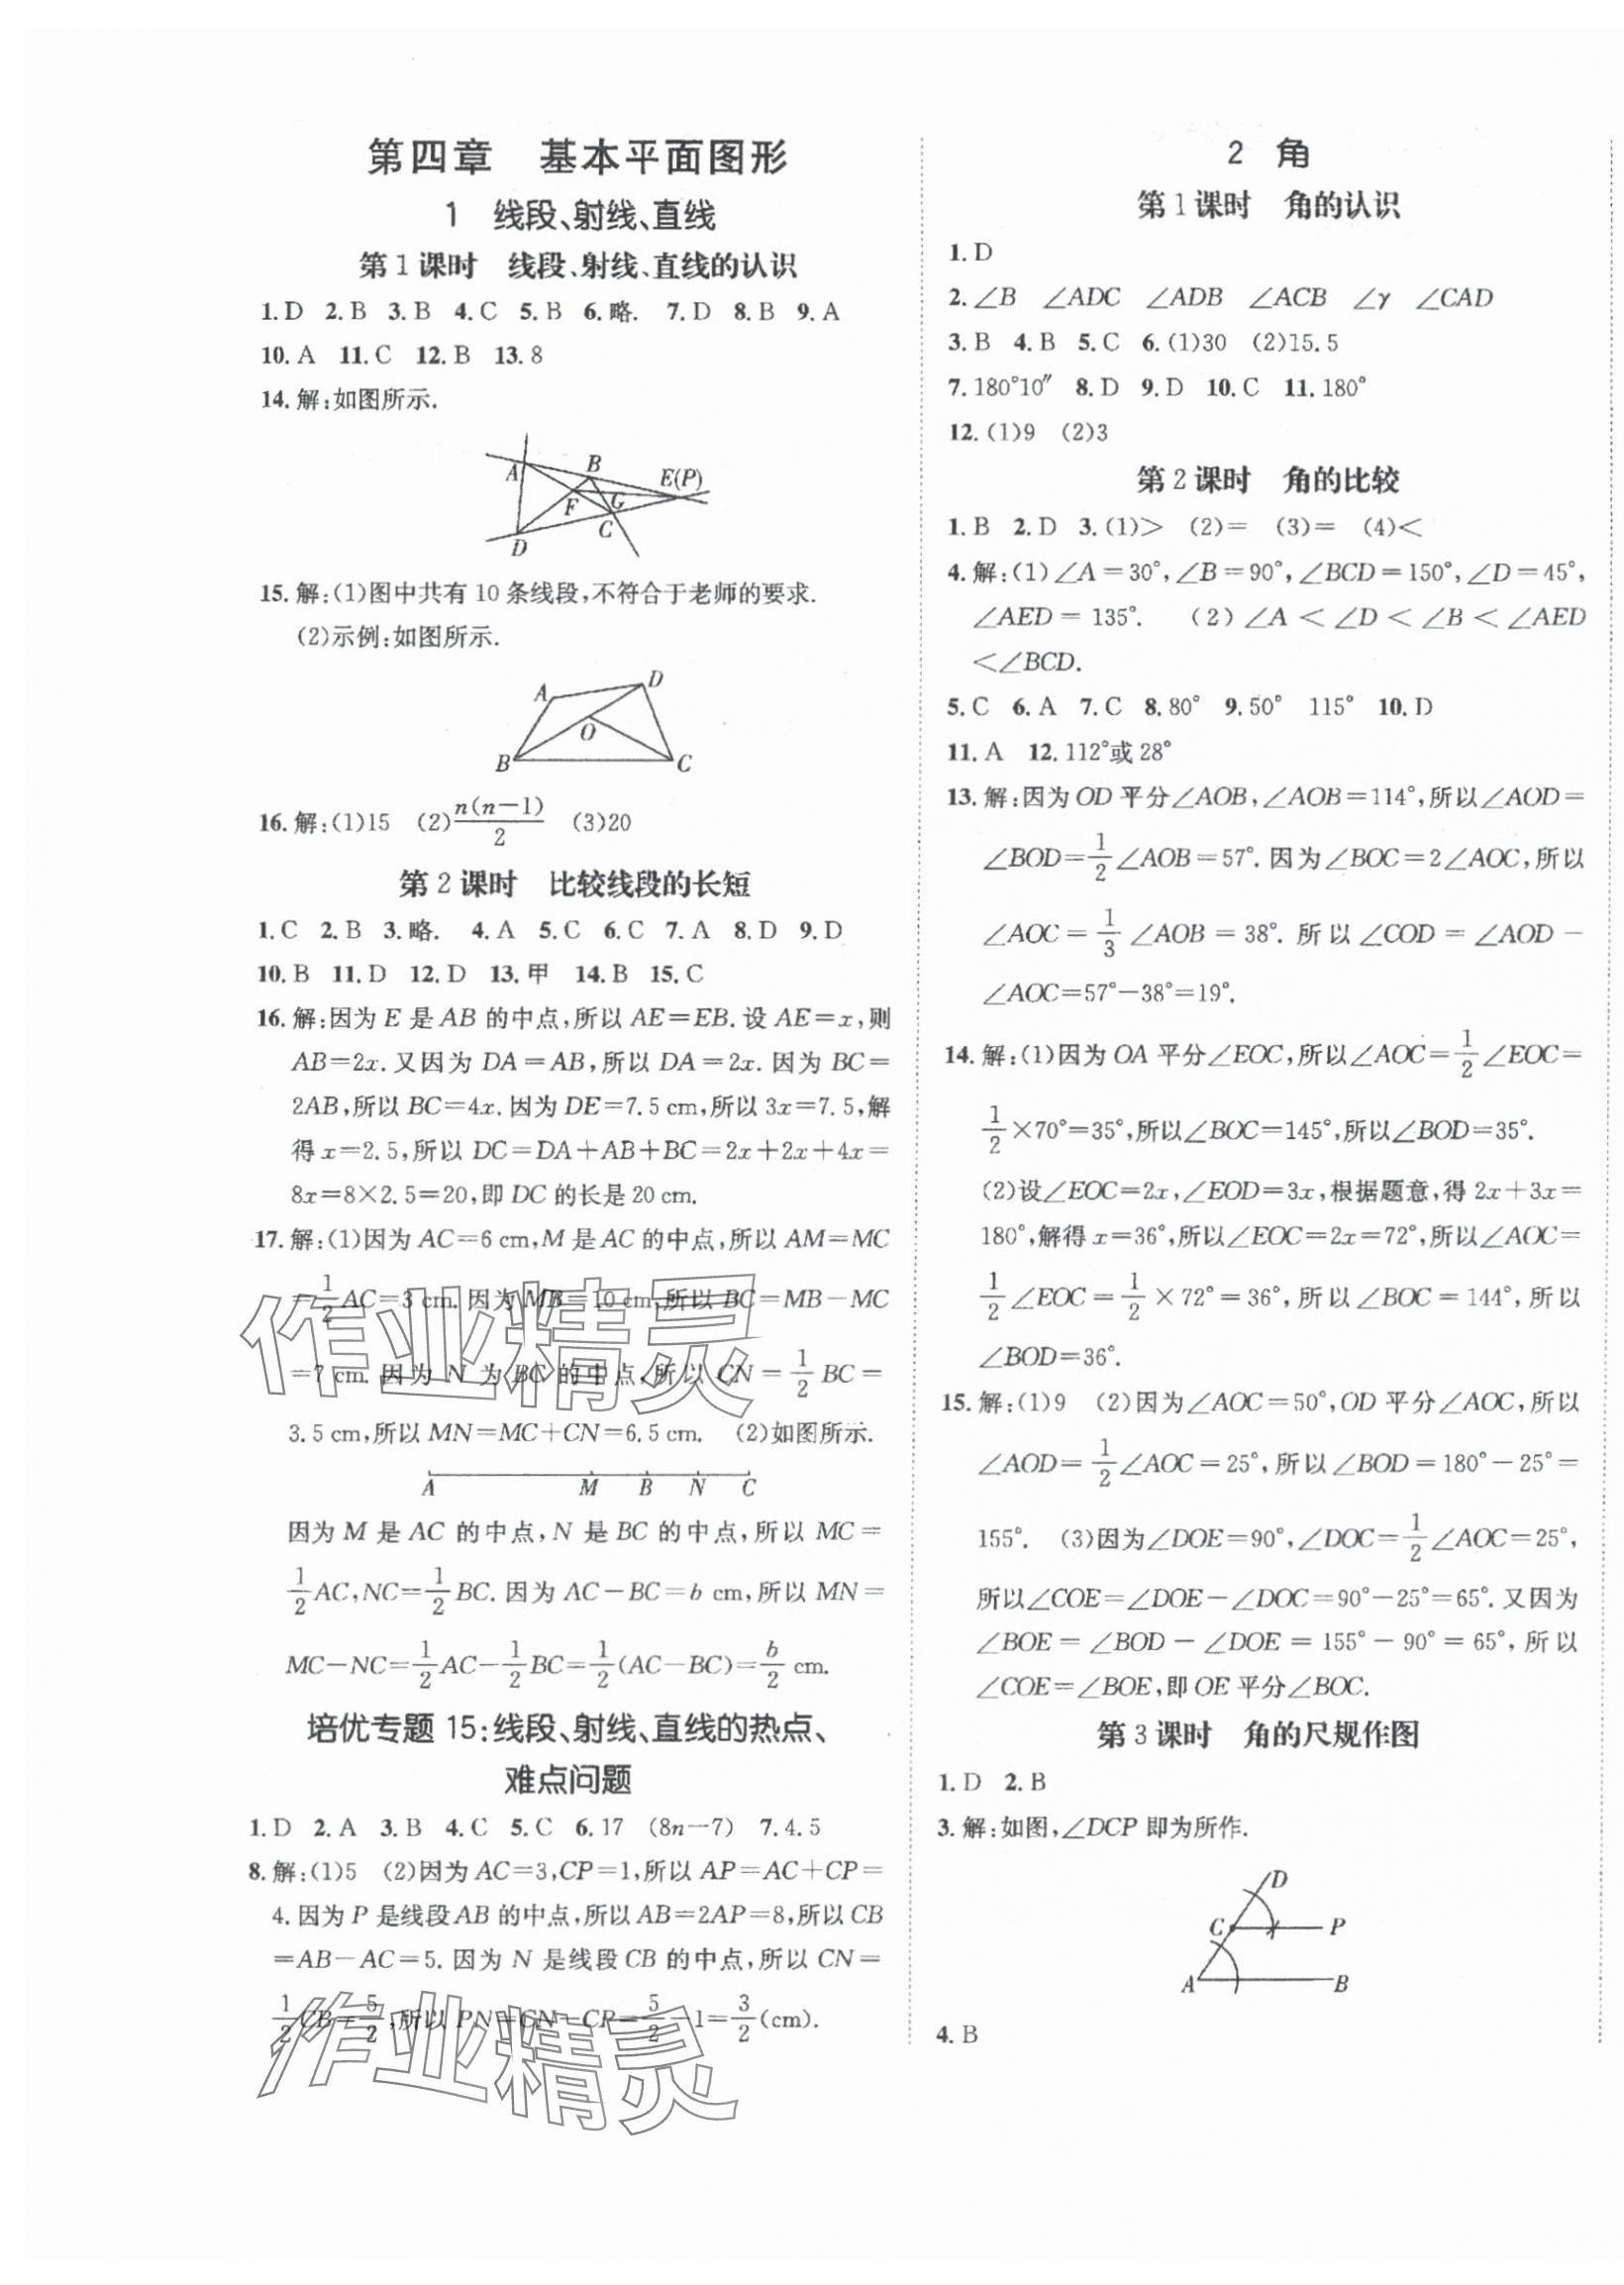 第四章 基本平面图形
1 线段、射线、直线
第1课时 线段、射线、直线的认识
1. D 2. B 3. B 4. C 5. B 6. 略. 7. D 8. B 9. A
10. A 11. C 12. B 13. 8
14. 解:如图所示.
A B E(P) F G C D
15. 解:(1)图中共有10条线段,不符合于老师的要求.
(2)示例:如图所示.
A D O B C
16. 解:(1)15 (2)n(n−1)/2 (3)20
第2课时 比较线段的长短
1. C 2. B 3. 略. 4. A 5. C 6. C 7. A 8. D 9. D
10. B 11. D 12. D 13. 甲 14. B 15. C
16. 解:因为 E 是 AB 的中点,所以 AE=EB. 设 AE=x,则
AB=2x. 又因为 DA=AB,所以 DA=2x. 因为 BC=
2AB,所以 BC=4x. 因为 DE=7.5 cm,所以 3x=7.5,解
得 x=2.5,所以 DC=DA+AB+BC=2x+2x+4x=
8x=8×2.5=20,即 DC 的长是 20 cm.
17. 解:(1)因为 AC=6 cm,M 是 AC 的中点,所以 AM=MC
=1/2 AC=3 cm. 因为 MB=10 cm,所以 BC=MB−MC
=7 cm. 因为 N 为 BC 的中点,所以 CN=1/2 BC=
3.5 cm,所以 MN=MC+CN=6.5 cm. (2)如图所示.
A M B N C
因为 M 是 AC 的中点,N 是 BC 的中点,所以 MC=
1/2 AC,NC=1/2 BC. 因为 AC−BC=b cm,所以 MN=
MC−NC=1/2 AC−1/2 BC=1/2(AC−BC)=b/2 cm.
培优专题15:线段、射线、直线的热点、
难点问题
1. D 2. A 3. B 4. C 5. C 6. 17 (8n−7) 7. 4.5
8. 解:(1)5 (2)因为 AC=3,CP=1,所以 AP=AC+CP=
4. 因为 P 是线段 AB 的中点,所以 AB=2AP=8,所以 CB
=AB−AC=5. 因为 N 是线段 CB 的中点,所以 CN=
1/2 CB=5/2,所以 PN=CN−CP=5/2−1=3/2(cm).
2 角
第1课时 角的认识
1. D
2. ∠B ∠ADC ∠ADB ∠ACB ∠γ ∠CAD
3. B 4. B 5. C 6. (1)30 (2)15.5
7. 180°10″ 8. D 9. D 10. C 11. 180°
12. (1)9 (2)3
第2课时 角的比较
1. B 2. D 3. (1)> (2)= (3)= (4)<
4. 解:(1)∠A=30°,∠B=90°,∠BCD=150°,∠D=45°,
∠AED=135°. (2)∠A<∠D<∠B<∠AED
<∠BCD.
5. C 6. A 7. C 8. 80° 9. 50° 115° 10. D
11. A 12. 112°或28°
13. 解:因为 OD 平分∠AOB,∠AOB=114°,所以∠AOD=
∠BOD=1/2∠AOB=57°. 因为∠BOC=2∠AOC,所以
∠AOC=1/3∠AOB=38°. 所以∠COD=∠AOD−
∠AOC=57°−38°=19°.
14. 解:(1)因为 OA 平分∠EOC,所以∠AOC=1/2∠EOC=
1/2×70°=35°,所以∠BOC=145°,所以∠BOD=35°.
(2)设∠EOC=2x,∠EOD=3x,根据题意,得 2x+3x=
180°,解得 x=36°,所以∠EOC=2x=72°,所以∠AOC=
1/2∠EOC=1/2×72°=36°,所以∠BOC=144°,所以
∠BOD=36°.
15. 解:(1)9 (2)因为∠AOC=50°,OD 平分∠AOC,所以
∠AOD=1/2∠AOC=25°,所以∠BOD=180°−25°=
155°. (3)因为∠DOE=90°,∠DOC=1/2∠AOC=25°,
所以∠COE=∠DOE−∠DOC=90°−25°=65°. 又因为
∠BOE=∠BOD−∠DOE=155°−90°=65°,所以
∠COE=∠BOE,即 OE 平分∠BOC.
第3课时 角的尺规作图
1. D 2. B
3. 解:如图,∠DCP 即为所作.
D C P A B
4. B
作业精灵
作业精灵